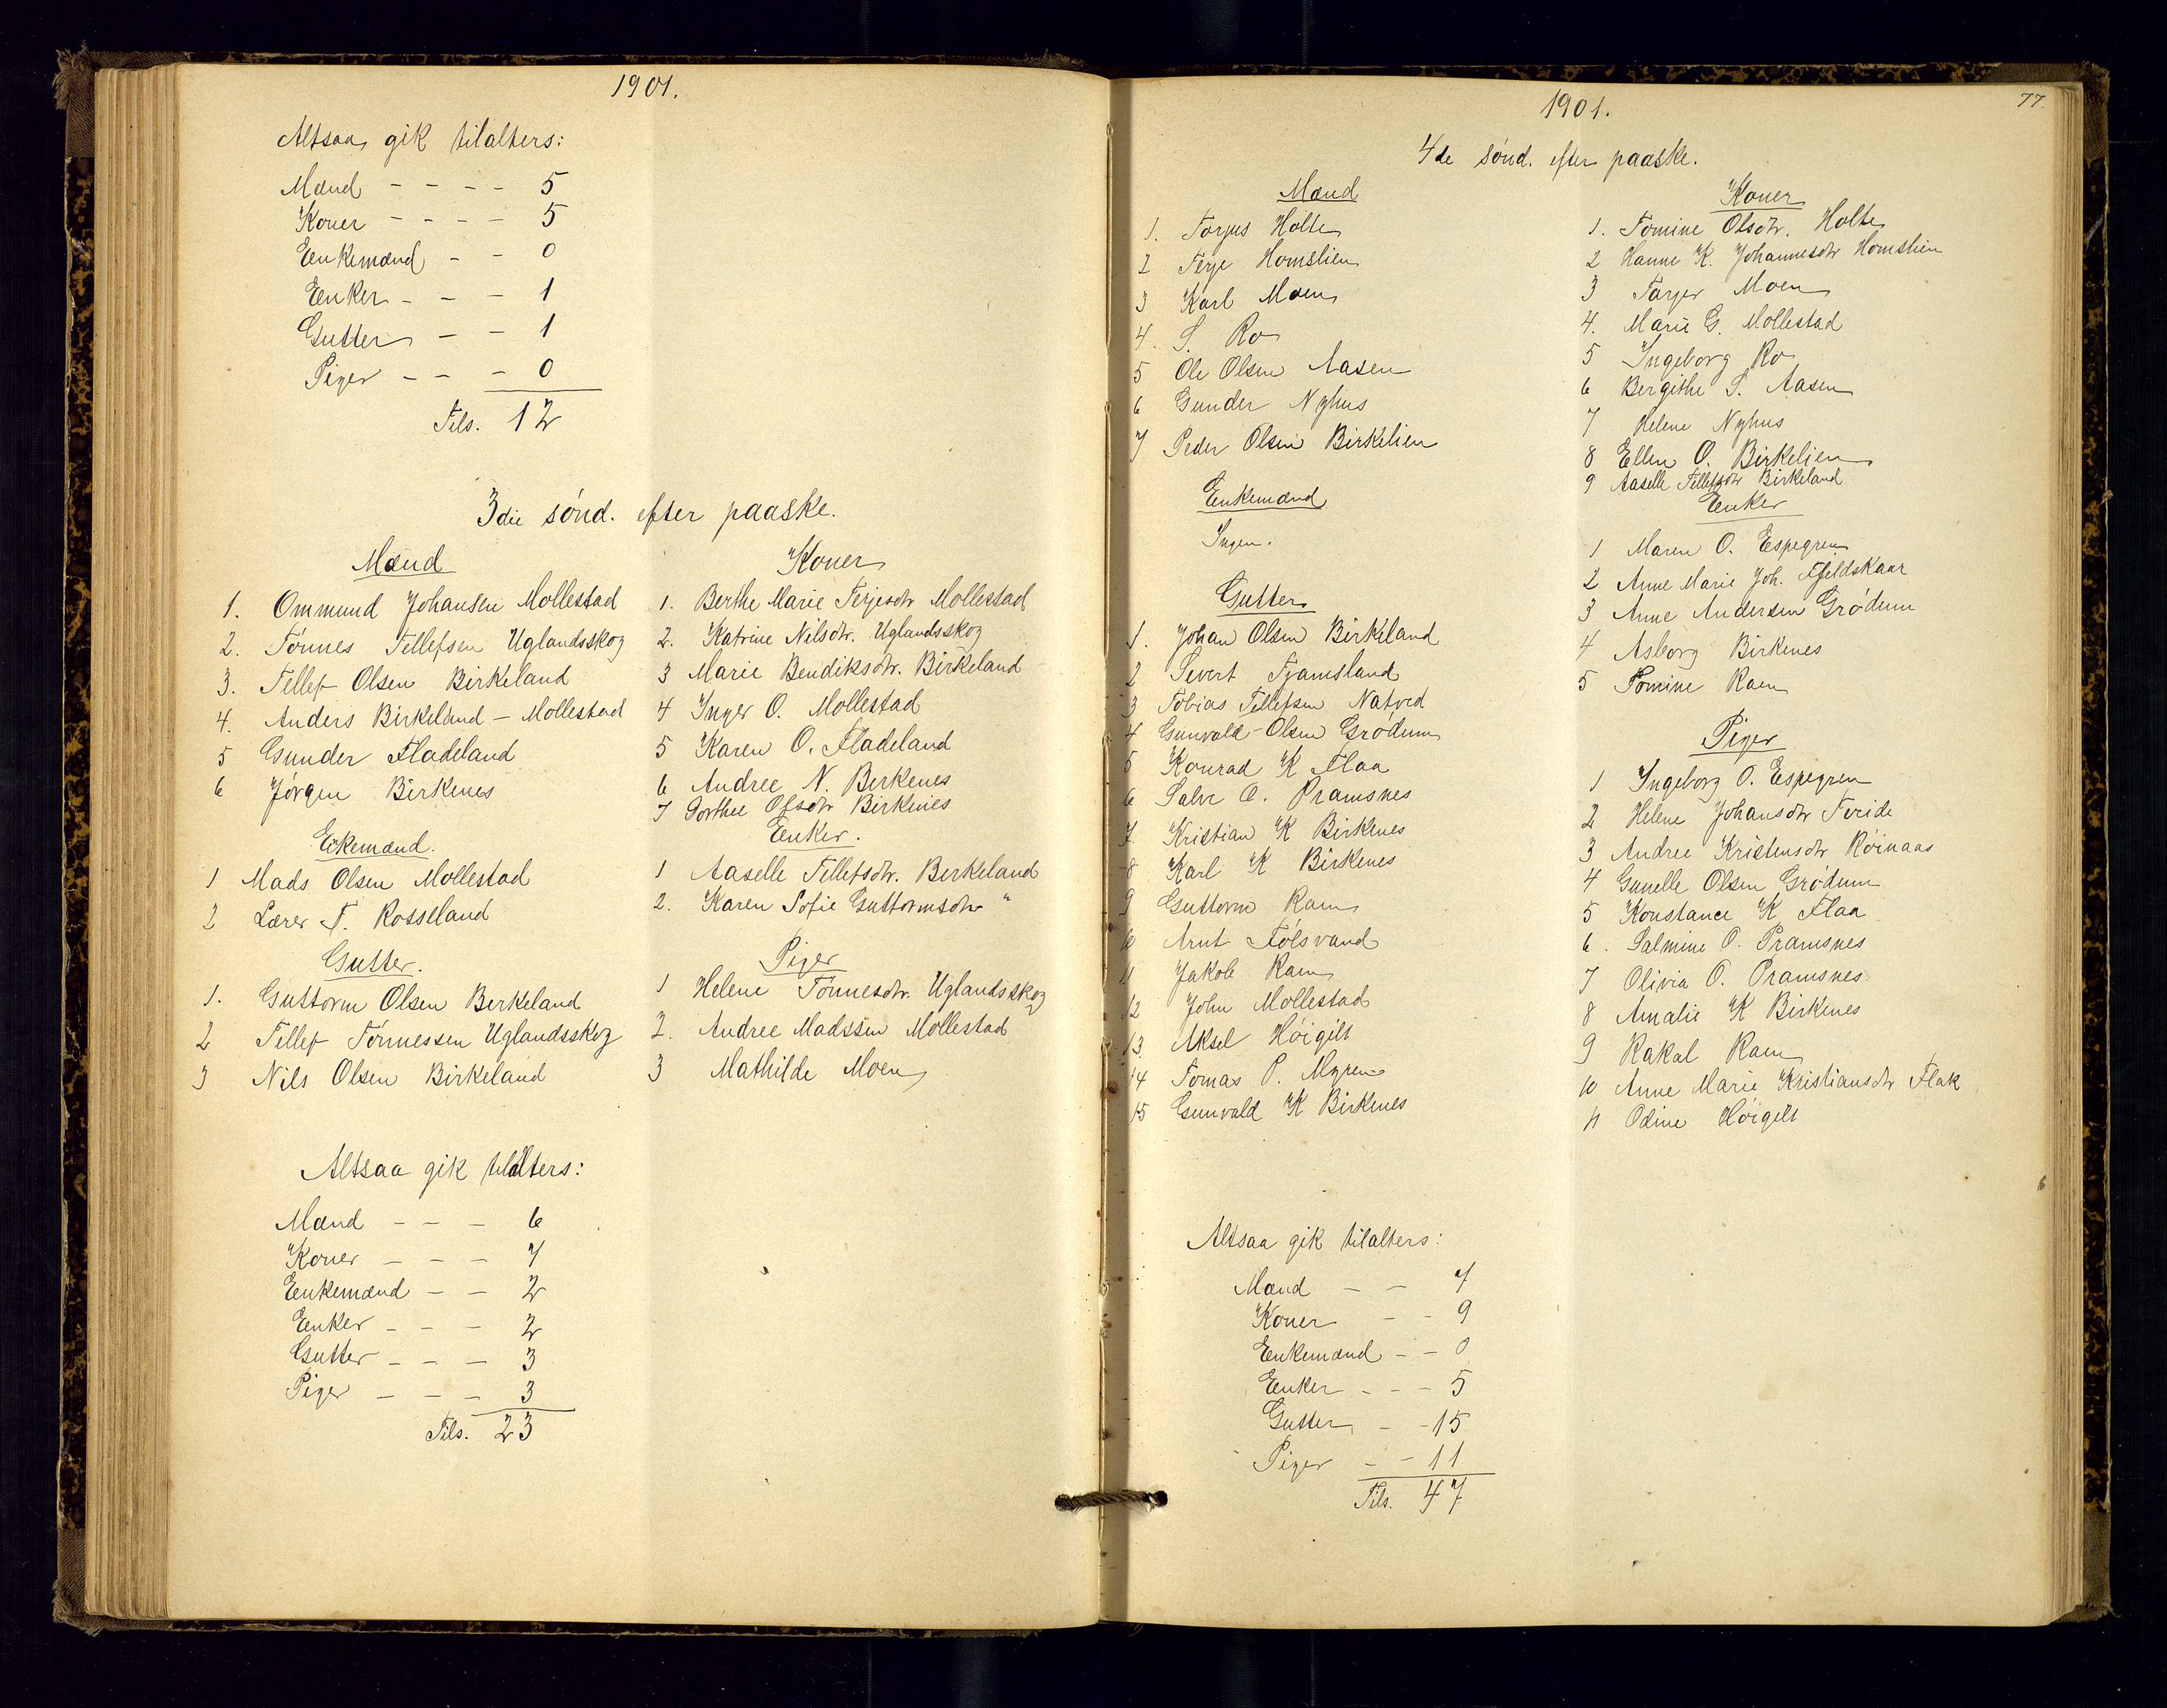 1901.
Altsaa gik tilalters:
Mænd - - - - 5
Koner - - - - 5
Enkemænd - - 0
Enker - - - 1
Gutter - - 1
Piger - - - 0
Tils. 12
3die sönd. efter paaske.
Mænd
1. Ommund Johansen Mollestad
2. Tönnes Tellefsen Uglandsskog
3. Tellef Olsen Birkeland
4. Anders Birkeland - Mollestad
5 Gunder Fladeland
6 Jörgen Birkenes
Ekemænd.
1 Mads Olsen Mollestad
2 Lærer T. Rosseland
Gutter.
1. Guttorm Olsen Berkeland
2 Tellef Tönnessen Uglandsskog
3 Nils Olsen Birkeland
Koner
1. Berthe Marie Terjesdtr Mollestad
2. Katrine Nilsdtr. Uglandsskog
3 Marie Bendiksdtr. Birkeland
4 Inger O. Mollestad
5 Karen O. Fladeland
6 Andree N. Berkenes
7 Dorthee Olsdtr Birkenes
Enker.
1 Aaselle Tellefsdtr. Berkeland
2. Karen Sofie Guttormsdtr "
Piger
1 Helene Tönnesdtr. Uglandsskog
2. Andree Madssen Mollestad
3 Mathilde Moen
Altsaa gik tilalters:
Mænd - - - 6
Koner - - - 7
Enkemænd - - 2
Enker - - - 2
Gutter - - - 3
Piger - - - 3
Tils. 23
77.
1901.
4de sönd. efter paaske.
Mænd
1. Torjus Holte
2 Terje Homslien
3 Karl Moen
4. S. Ro
5 Ole Olsen Aasen
6 Gunder Nyhus
7 Peder Olsen Birkelien
Enkemænd
Ingen.
Gutter
1. Johan Olsen Birkeland
2 Severt Tjamsland
3 Tobias Tellefsen Natved
4 Gunvald Olsen Grödum
5 Konrad K Flaa
6 Salve O. Pramsnes
7. Kristian K Birkenes
8 Karl K Birkenes
9 Guttorm Raen
10 Arnt Fölsvand
11 Jakob Raen
12 John Mollestad
13. Aksel Höigilt
14 Tomas P. Myren
15 Gunvald K Birkenes
Koner
1. Tomine Olsdtr. Holte
2 Hanne K. Johannesdtr Homslien
3 Tarjer Moen
4. Marie G. Mollestad
5 Ingeborg Ro
6 Bergithe S. Aasen
7 Helene Nyhus
8 Ellen O. Birkelien
9 Aaselle Tellefsdtr Birkeland
Enker
1 Maren O. Espegren
2 Anne Marie Joh.
3 Anne Andersen Grödum
4 Asborg Birkenes
5 Tomine Raen
Piger
1 Ingeborg O. Espegren
2 Helene Johansdtr Foride
3 Andree Kristensdtr Röinaas
4 Gunelle Olsen Grödum
5 Konstance K Flaa
6. Salmine O. Pramsnes
7 Olivia O. Pramsnes
8 Amalie K Birkenes
9 Rakal Raen
10 Anne Marie Kristiansdtr Flak
11 Odine Höigilt
Altsaa gik tilalters:
Mænd - - 7
Koner - - 9
Enkemænd - - 0
Enker - - - 5
Gutter - - 15
Piger - - 11
Tils. 47